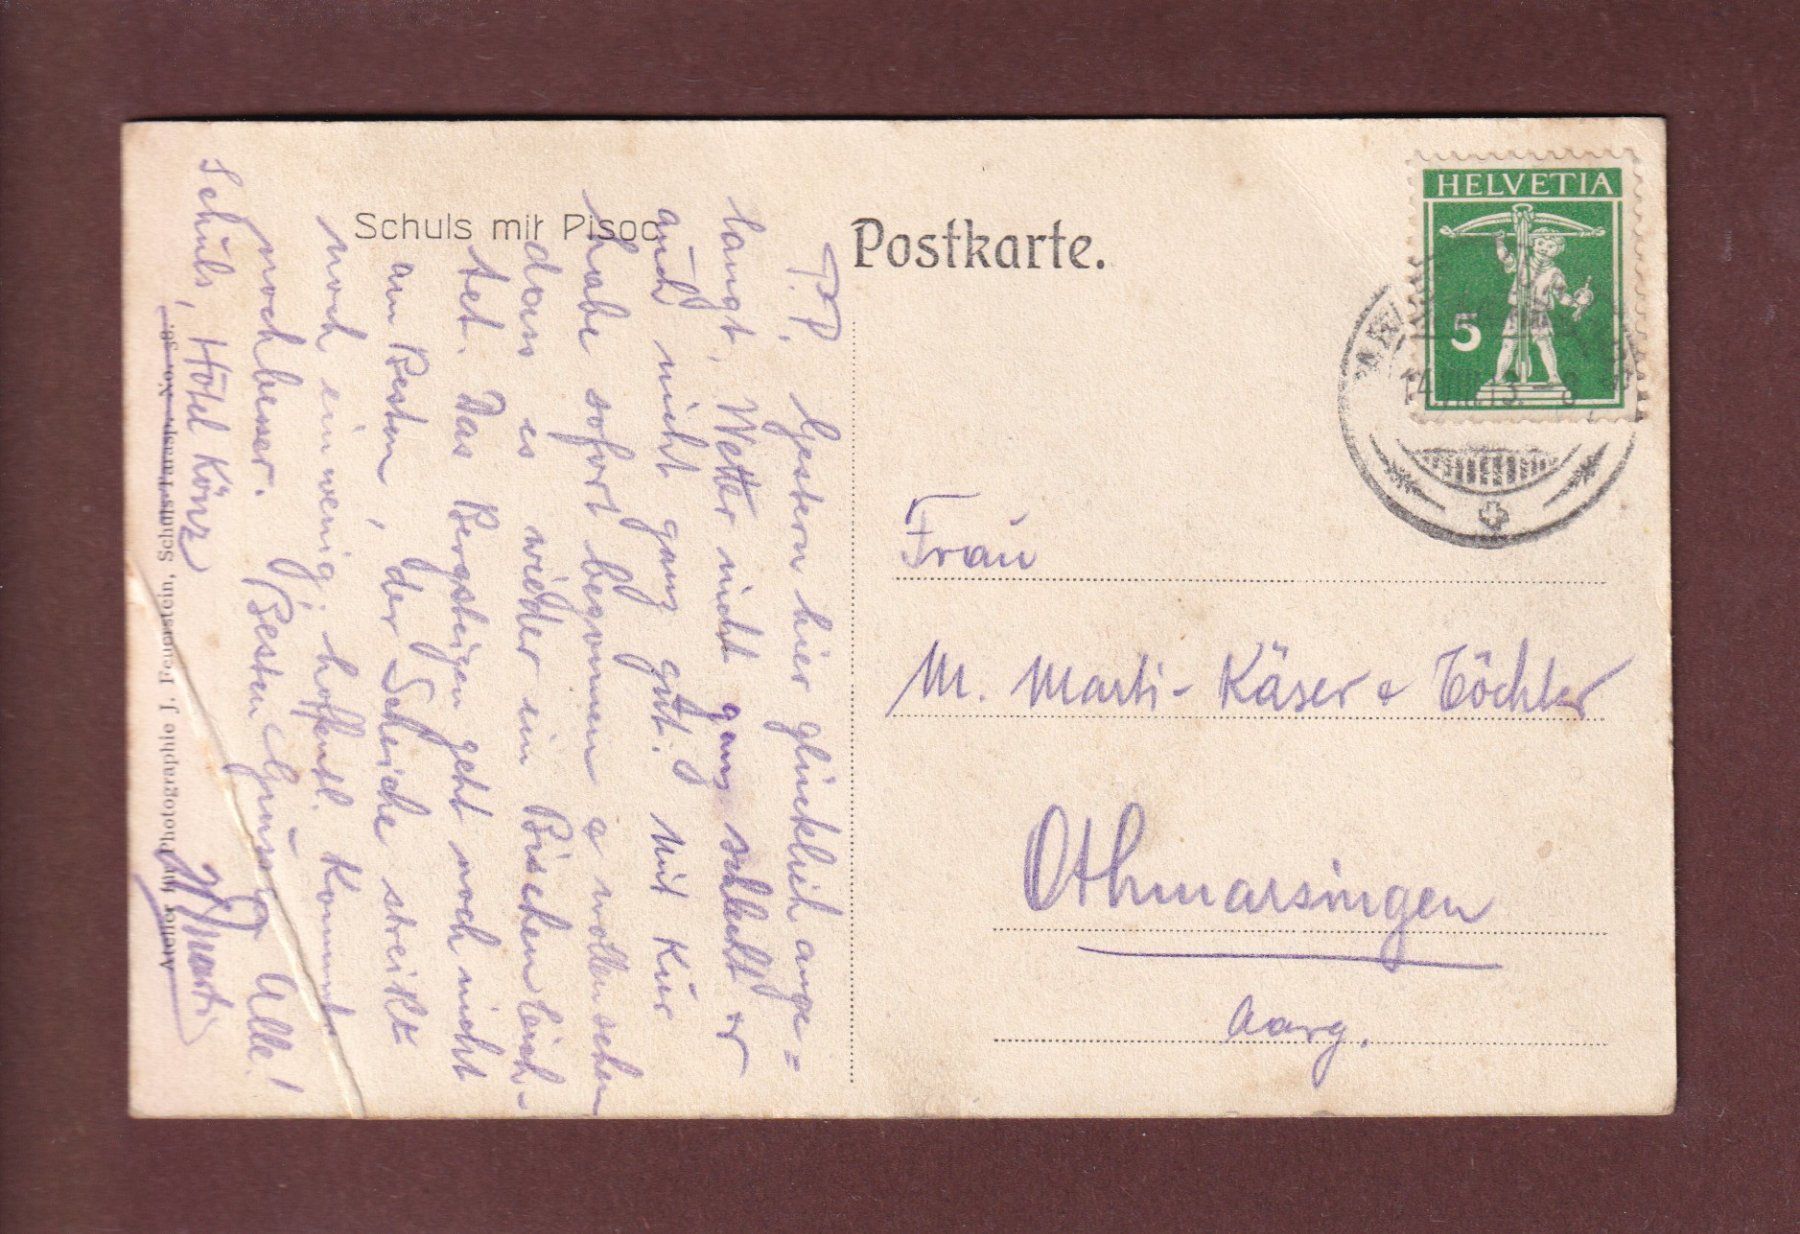 Schuls mit Pisoc
Postkarte.
HELVETIA
5
P.P. Gestern hier glücklich ange=
langt, Wetter nicht ganz schlecht er
auch nicht ganz gut. Mit Kur
habe sofort begonnen & wollen sehen
dass es wieder ein Bischen läuft.
tet. Das Bergsteigen geht noch nicht
am Besten, der Scheiche streikt
noch ein wenig; hoffentl. kommts
noch besser. Besten Gruss a Alle!
Schuls, Hôtel Könz
Marti
Frau
M. Marti-Käser & Töchter
Othmarsingen
Aarg.
Atelier für Photographie J. Feuerstein, Schuls-Tarasp.